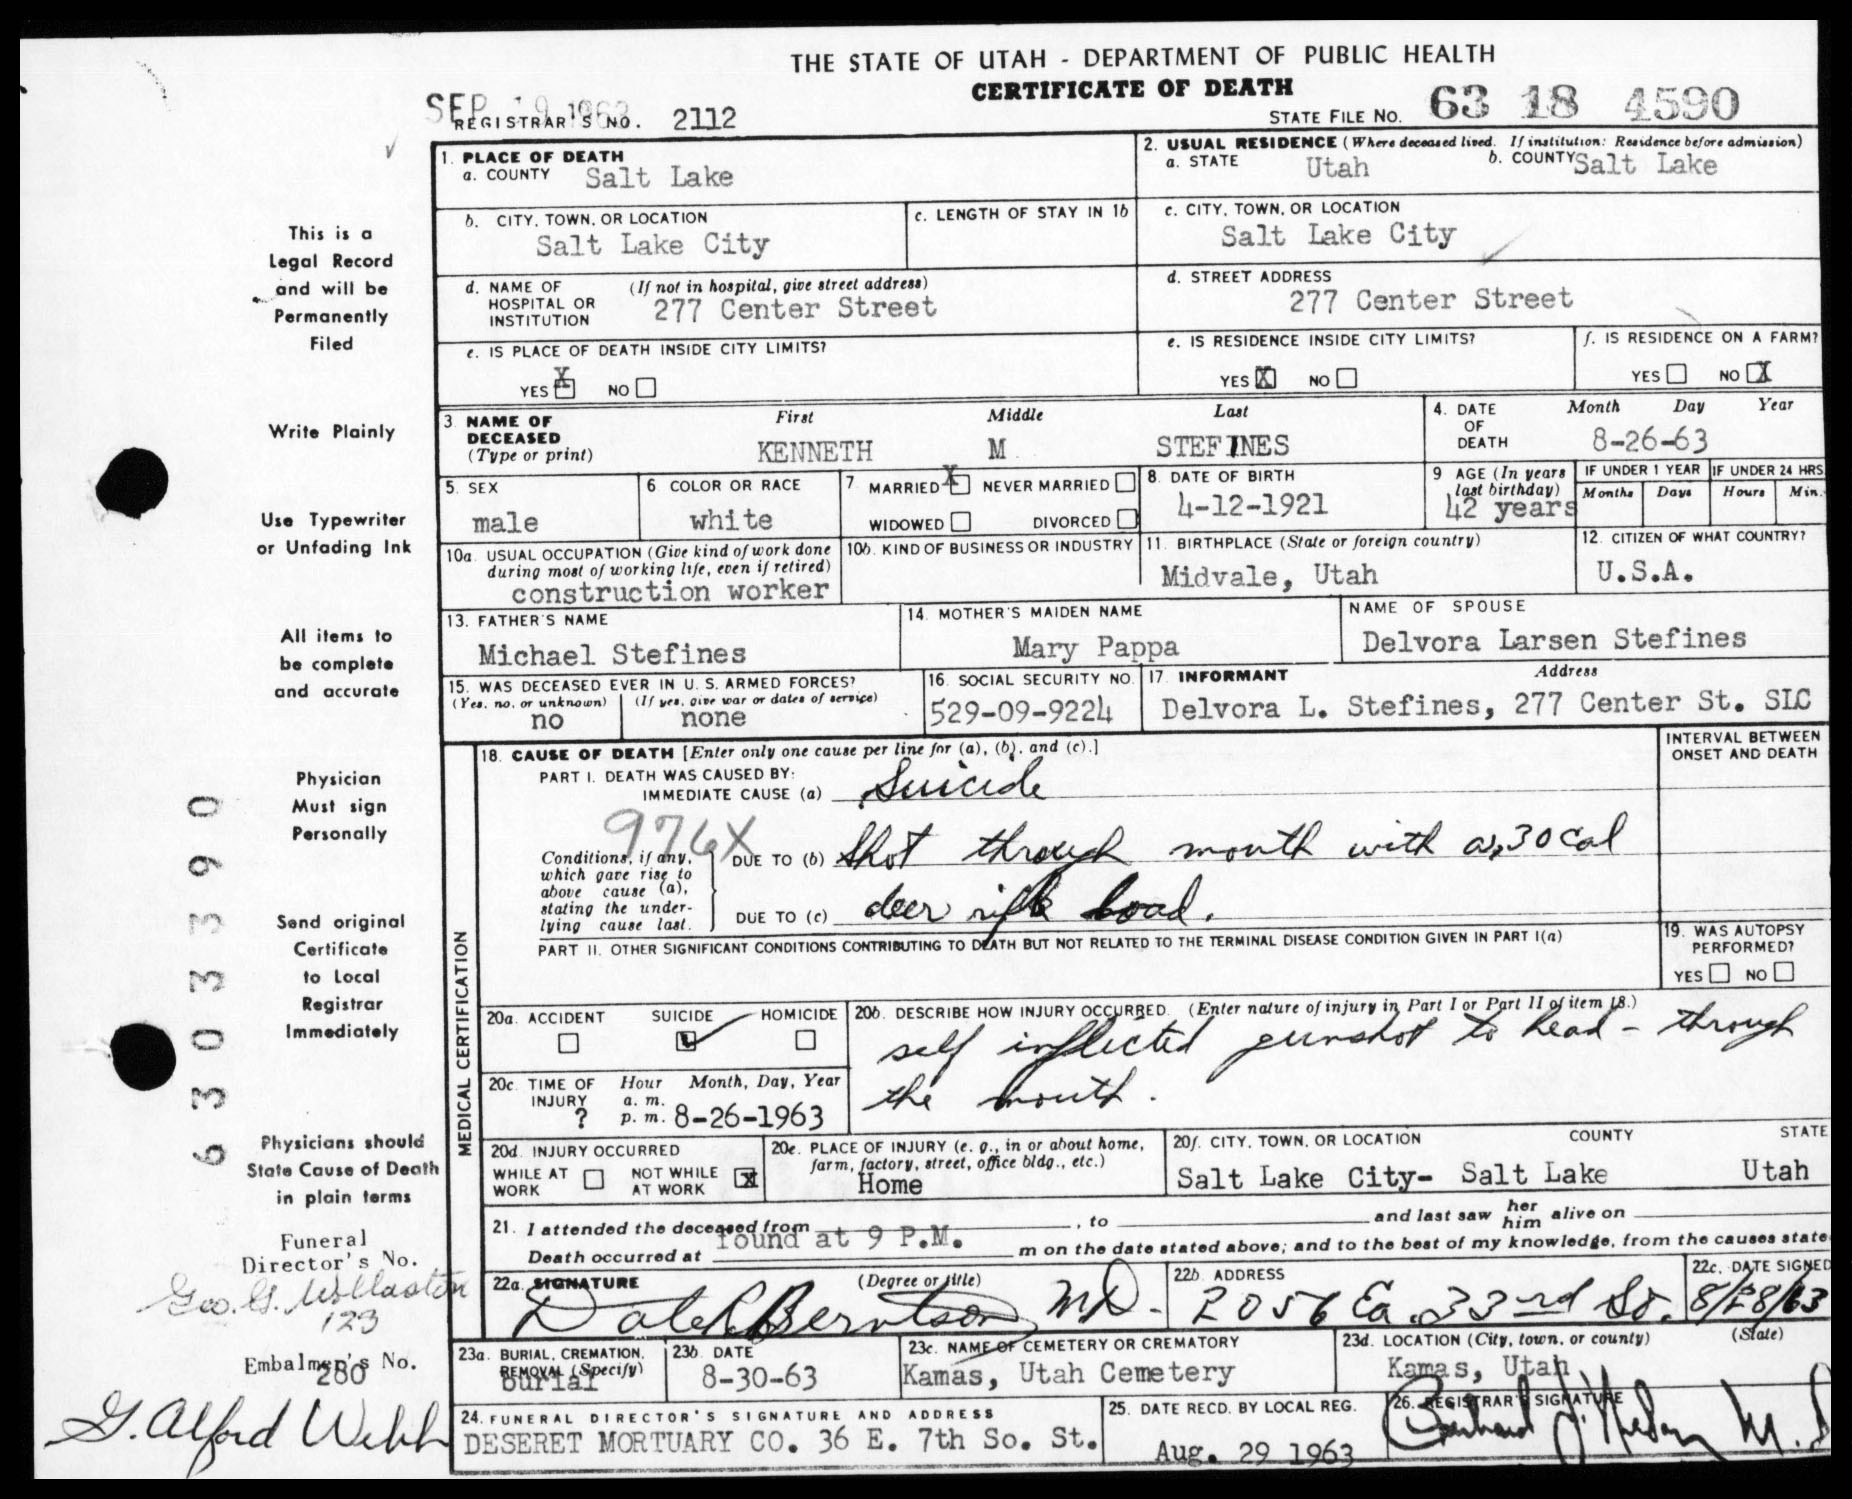 THE STATE OF UTAH - DEPARTMENT OF PUBLIC HEALTH
CERTIFICATE OF DEATH
SEP 19 1963
REGISTRAR'S NO. 2112
STATE FILE NO. 63 18 4590
1. PLACE OF DEATH
a. COUNTY Salt Lake
2. USUAL RESIDENCE (Where deceased lived. If institution: Residence before admission)
a. STATE Utah b. COUNTY Salt Lake
b. CITY, TOWN, OR LOCATION
Salt Lake City
c. LENGTH OF STAY IN 1b
c. CITY, TOWN, OR LOCATION
Salt Lake City
d. NAME OF HOSPITAL OR INSTITUTION (If not in hospital, give street address)
277 Center Street
d. STREET ADDRESS
277 Center Street
e. IS PLACE OF DEATH INSIDE CITY LIMITS?
YES X NO
e. IS RESIDENCE INSIDE CITY LIMITS?
YES X NO
f. IS RESIDENCE ON A FARM?
YES NO X
3. NAME OF DECEASED (Type or print)
First Middle Last
KENNETH M STEFINES
4. DATE OF DEATH Month Day Year
8-26-63
5. SEX
male
6. COLOR OR RACE
white
7. MARRIED X NEVER MARRIED
WIDOWED DIVORCED
8. DATE OF BIRTH
4-12-1921
9 AGE (In years last birthday)
42 years
IF UNDER 1 YEAR IF UNDER 24 HRS.
Months Days Hours Min.
10a. USUAL OCCUPATION (Give kind of work done during most of working life, even if retired)
construction worker
10b. KIND OF BUSINESS OR INDUSTRY
11. BIRTHPLACE (State or foreign country)
Midvale, Utah
12. CITIZEN OF WHAT COUNTRY?
U.S.A.
13. FATHER'S NAME
Michael Stefines
14. MOTHER'S MAIDEN NAME
Mary Pappa
NAME OF SPOUSE
Delvora Larsen Stefines
15. WAS DECEASED EVER IN U. S. ARMED FORCES?
(Yes, no, or unknown) (If yes, give war or dates of service)
no none
16. SOCIAL SECURITY NO.
529-09-9224
17. INFORMANT Address
Delvora L. Stefines, 277 Center St. SLC
MEDICAL CERTIFICATION
18. CAUSE OF DEATH [Enter only one cause per line for (a), (b), and (c).]
INTERVAL BETWEEN ONSET AND DEATH
PART I. DEATH WAS CAUSED BY:
IMMEDIATE CAUSE (a) Suicide
976X
Conditions, if any, which gave rise to above cause (a), stating the underlying cause last.
DUE TO (b) Shot through mouth with a .30 cal
DUE TO (c) deer rifle load.
PART II. OTHER SIGNIFICANT CONDITIONS CONTRIBUTING TO DEATH BUT NOT RELATED TO THE TERMINAL DISEASE CONDITION GIVEN IN PART I(a)
19. WAS AUTOPSY PERFORMED?
YES NO
20a. ACCIDENT SUICIDE HOMICIDE
20b. DESCRIBE HOW INJURY OCCURRED. (Enter nature of injury in Part I or Part II of item 18.)
self inflected gunshot to head - through
the mouth.
20c. TIME OF INJURY Hour Month, Day, Year
? a. m. p. m. 8-26-1963
20d. INJURY OCCURRED
WHILE AT WORK NOT WHILE AT WORK X
20e. PLACE OF INJURY (e. g., in or about home, farm, factory, street, office bldg., etc.)
Home
20f. CITY, TOWN, OR LOCATION COUNTY STATE
Salt Lake City- Salt Lake Utah
21. I attended the deceased from , to and last saw her him alive on
Death occurred at found at 9 P.M. m on the date stated above; and to the best of my knowledge, from the causes state
22a. SIGNATURE (Degree or title)
Dale R Berntson MD.
22b. ADDRESS
2056 Ea. 33rd So.
22c. DATE SIGNED
8/28/63
23a. BURIAL, CREMATION, REMOVAL (Specify)
Burial
23b. DATE
8-30-63
23c. NAME OF CEMETERY OR CREMATORY
Kamas, Utah Cemetery
23d. LOCATION (City, town, or county) (State)
Kamas, Utah
24. FUNERAL DIRECTOR'S SIGNATURE AND ADDRESS
DESERET MORTUARY CO. 36 E. 7th So. St.
25. DATE RECD. BY LOCAL REG.
Aug. 29 1963
26. REGISTRAR'S SIGNATURE
M.D
This is a
Legal Record
and will be
Permanently
Filed
Write Plainly
Use Typewriter
or Unfading Ink
All items to
be complete
and accurate
Physician
Must sign
Personally
Send original
Certificate
to Local
Registrar
Immediately
Physicians should
State Cause of Death
in plain terms
6303390
Funeral
Director's No.
Geo. G. Wollaston
123
Embalmer's No.
280
G. Alford Webb